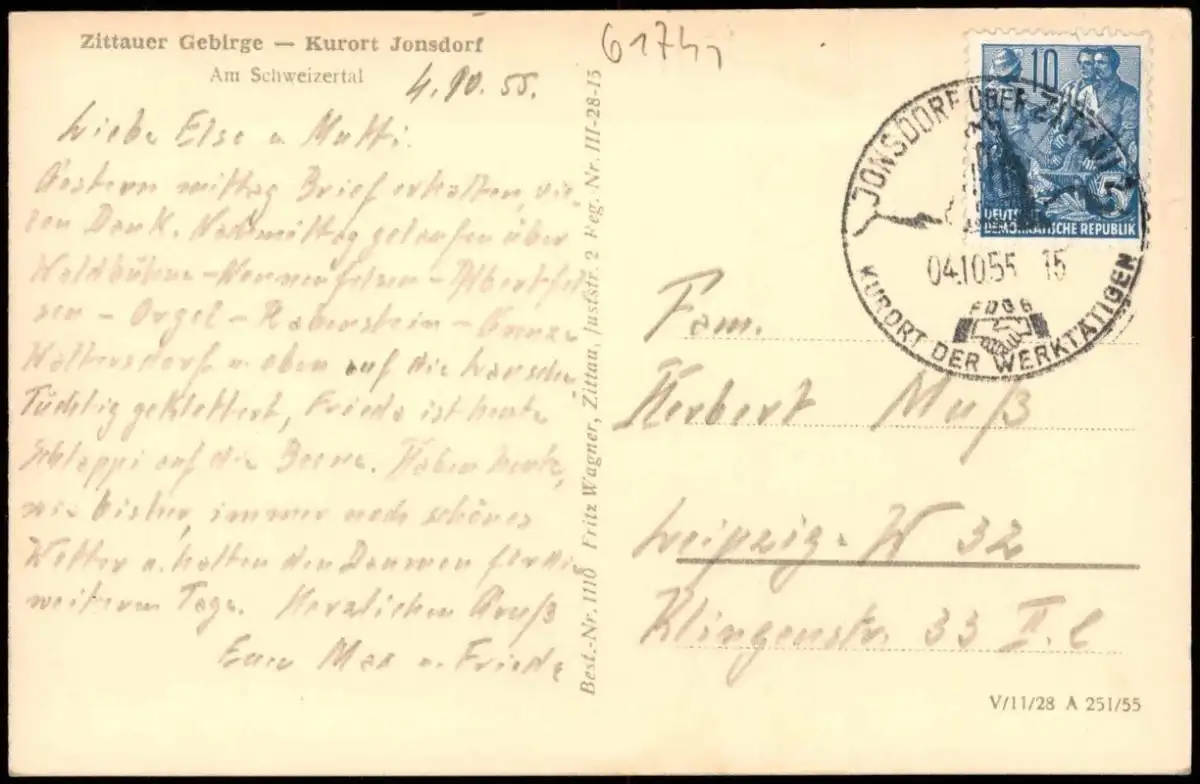 Zittauer Gebirge — Kurort Jonsdorf
Am Schweizertal
4.10.55.
Liebe Else u Mutti.
Gestern mittag Brief erhalten, vie-
len Dank. Nachmittag gelaufen über
Waldbühne-Nonnenfelsen-Albertfel
sen - Orgel - Rabenstein - Grenze
Waltersdorf u. oben auf die Lausche
Tüchtig geklettert, Friede ist heute
Schlappi auf die Beene. Haben heute,
wie bisher, immer noch schönes
Wetter u. halten den Daumen für die
weiteren Tage. Herzlichen Gruß
Euer Max u. Friede
Best.-Nr. 1110 Fritz Wagner, Zittau, Juststr. 2 Reg. Nr. III-28-15
6174
10
5
DEUTSCHE
DEMOKRATISCHE REPUBLIK
JONSDORF ÜBER ZITTAU 2
04.10.55 15
FDGB
KURORT DER WERKTÄTIGEN
Fam.
Herbert Muß
Leipzig-W 32
Klingenstr. 33 II. l
V/11/28 A 251/55